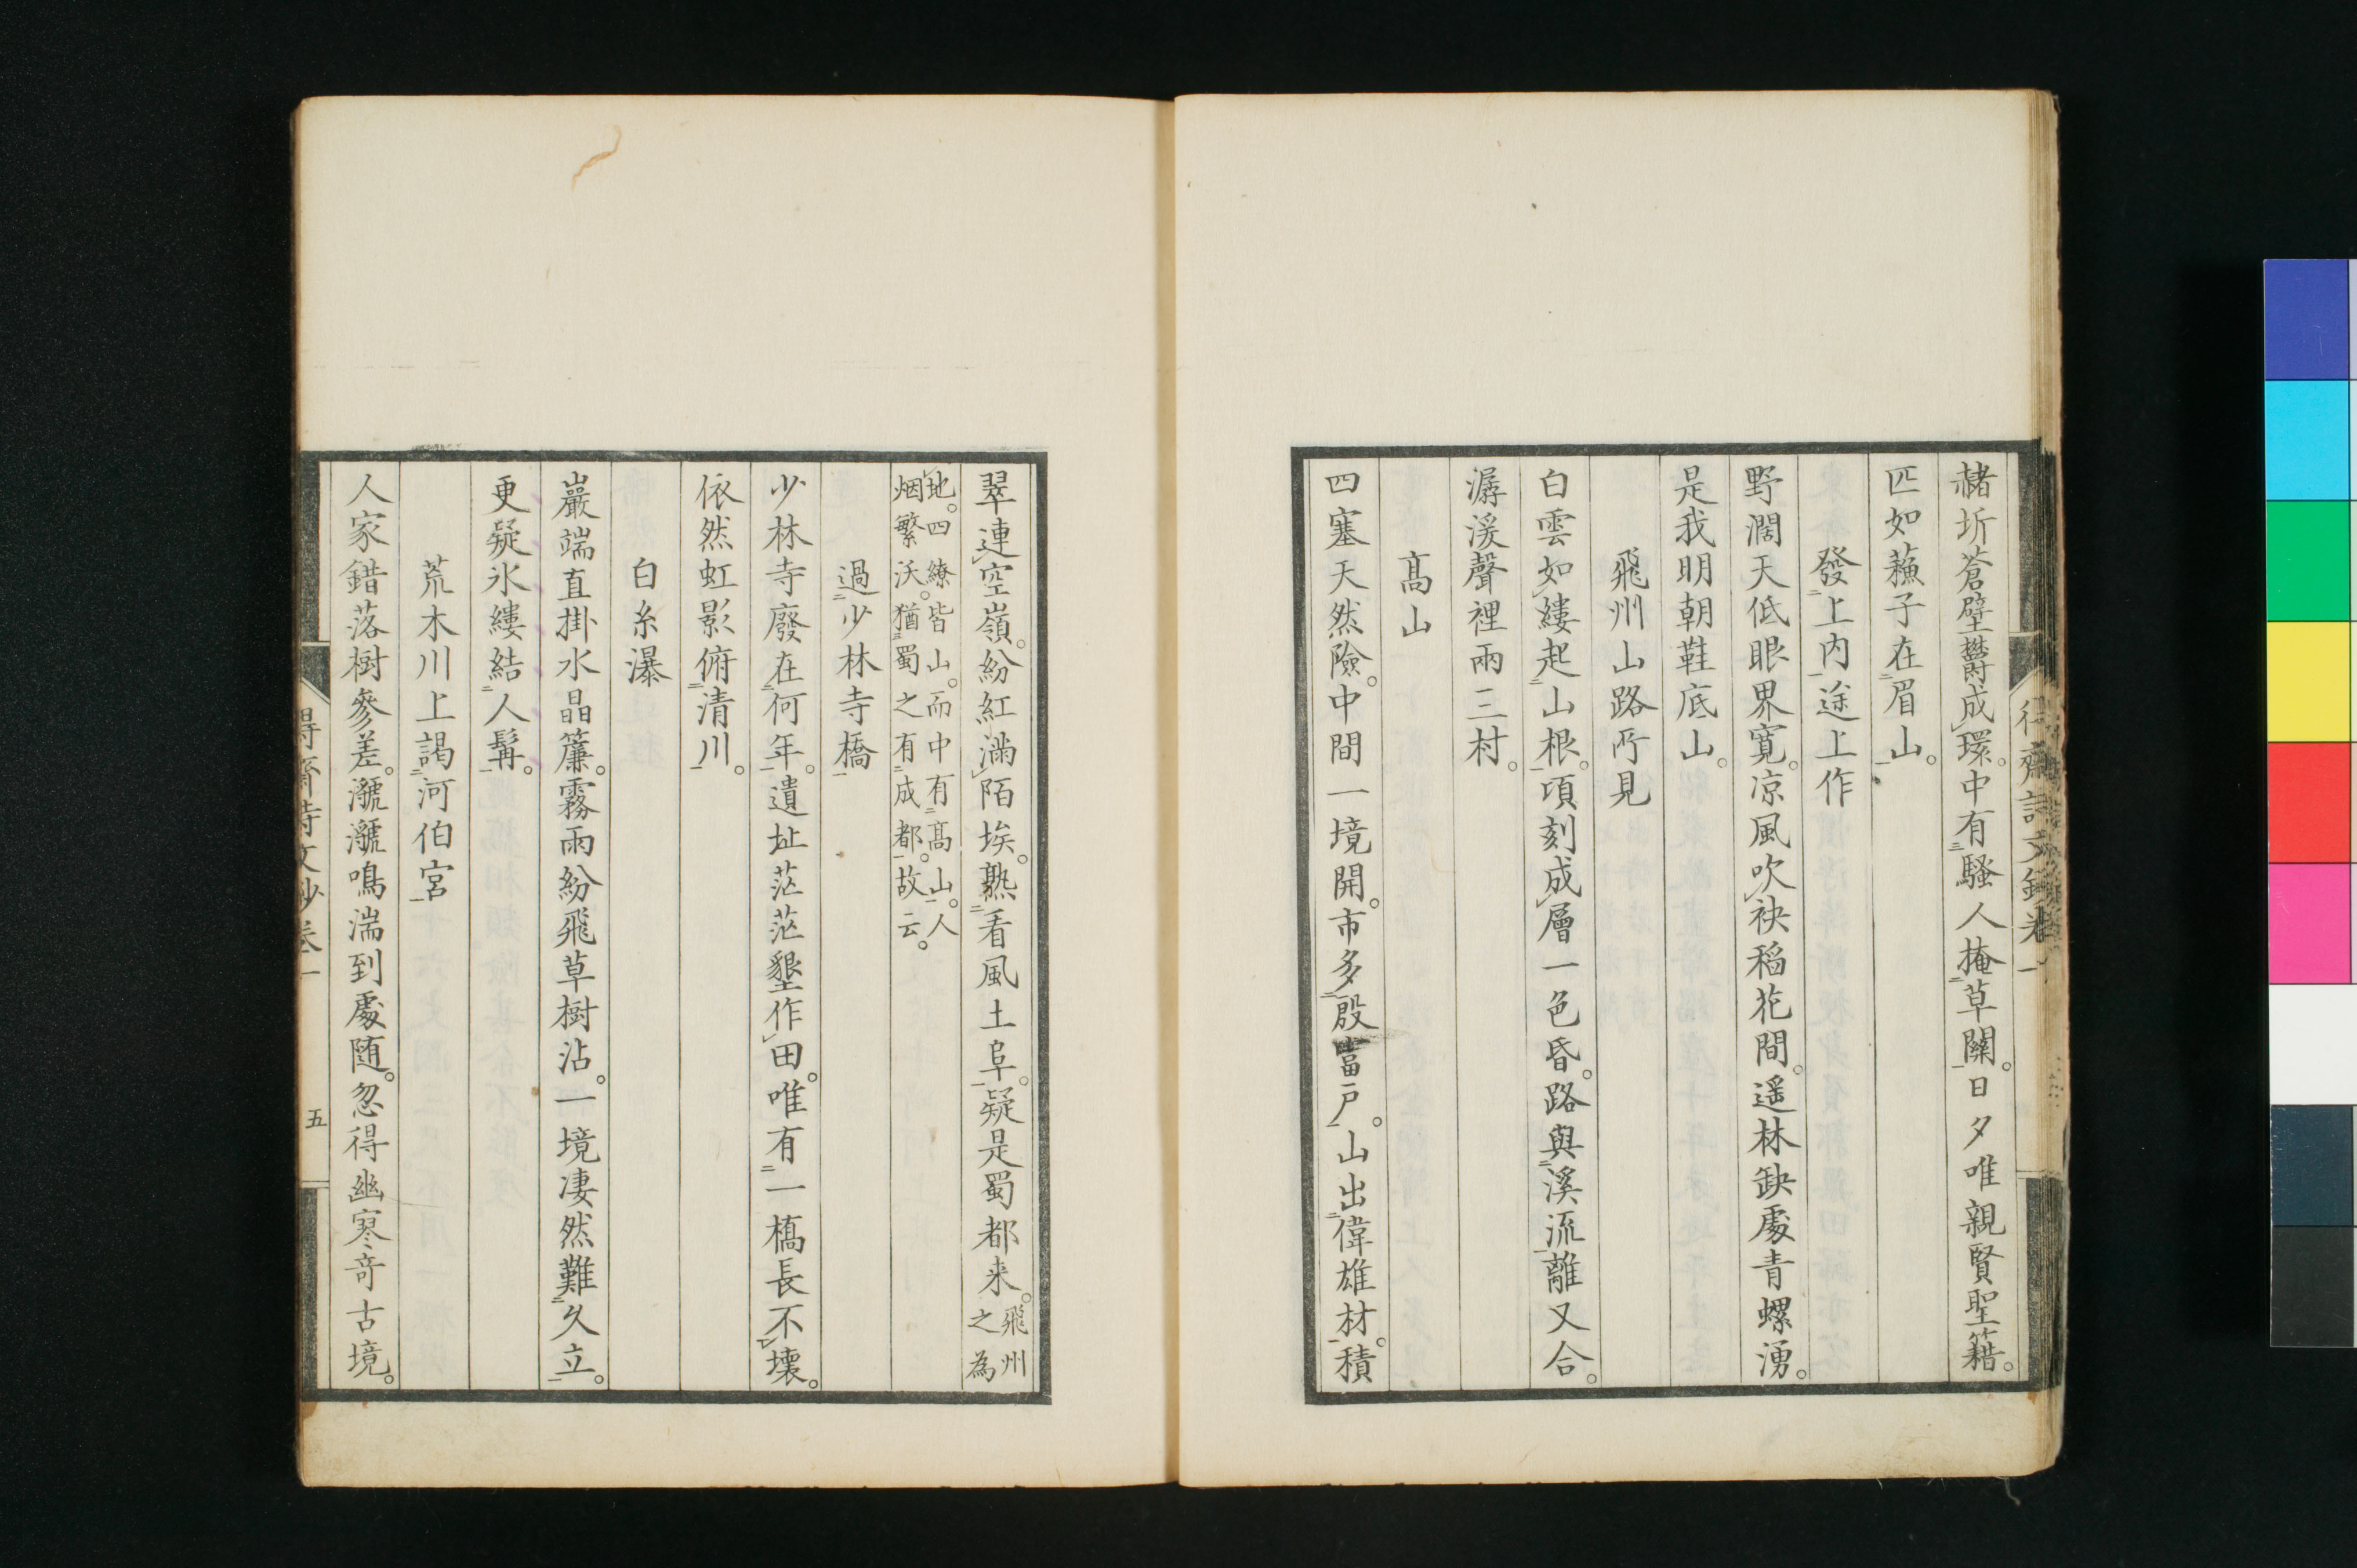 赭圻蒼壁欝成環。中有騷人掩草關。日夕唯親賢聖籍。
匹如蘓子在眉山。
發上内途上作
野濶天低眼界寛。凉風吹袂稲花間。遥林缺處青螺湧。
是我明朝鞋底山。
飛州山路所見
白雲如縷起山根。頃刻成層一色昏。路與溪流離又合。
潺湲聲裡兩三村。
髙山
四塞天然險。中間一境開。市多殷富戸。山出偉雄材。積
翠連空嶺。紛紅滿陌埃。熟看風土阜。疑是蜀都来。飛州
之為
地。四繚皆山。而中有髙山。人
烟繁沃。猶蜀之有成都。故云。
過少林寺橋
少林寺廢在何年。遺址茫茫墾作田。唯有一橋長不壞。
依然虹影俯清川。
白糸瀑
巖端直掛水晶簾。霧雨紛飛草樹沾。一境凄然難久立。
更疑氷縷結人髯。
荒木川上謁河伯宮
人家錯落樹參差。㶁㶁鳴湍到處随。忽得幽寒奇古境。
得齋詩文鈔卷一
五